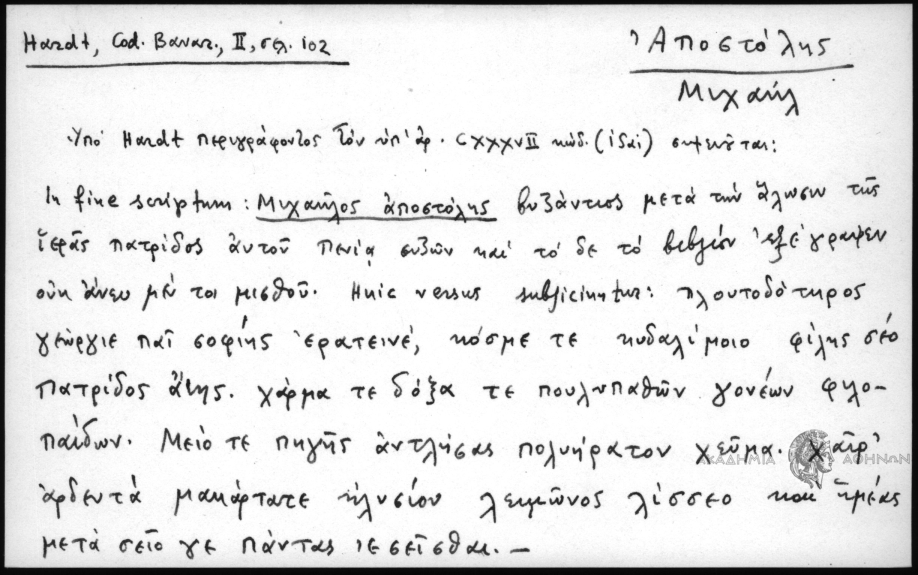 Hardt, Cod. Bavar., II, σελ. 102
Ἀποστόλης
Μιχαήλ
Ὑπό Hardt περιγράφοντος τόν ὑπ' ἀρ. CXXXVII κώδ. (ἰσαι) σημειοῦται:
In fine scriptum: Μιχαῆλος ἀποστόλης βυζάντιος μετά τήν ἅλωσιν τῆς
ἱερᾶς πατρίδος αὐτοῦ πενίᾳ συζῶν καί τό δε τό βιβλίον ἐξέγραψεν
οὐκ ἄνευ μέν τοι μισθοῦ. Huic versus subjiciuntur: πλουτοδότηρος
γεώργιε παῖ σοφίης ἐρατεινέ, κόσμε τε κυδαλίμοιο φίλης σέο
πατρίδος αἴης. χάρμα τε δόξα τε πουλυπαθῶν γονέων φιλο-
παίδων. Μειό τε πηγῆς ἀντλήσας πολυήρατον χεῦμα. χαῖρ'
ΑΚΑΔΗΜΙΑ ΑΘΗΝΩΝ
ἀρδεντά μακάρτατε ἠλυσίου λειμῶνος λίσσεο καί ἡμέας
μετά σεῖο γε πάντας ἐσεῖσθαι. —